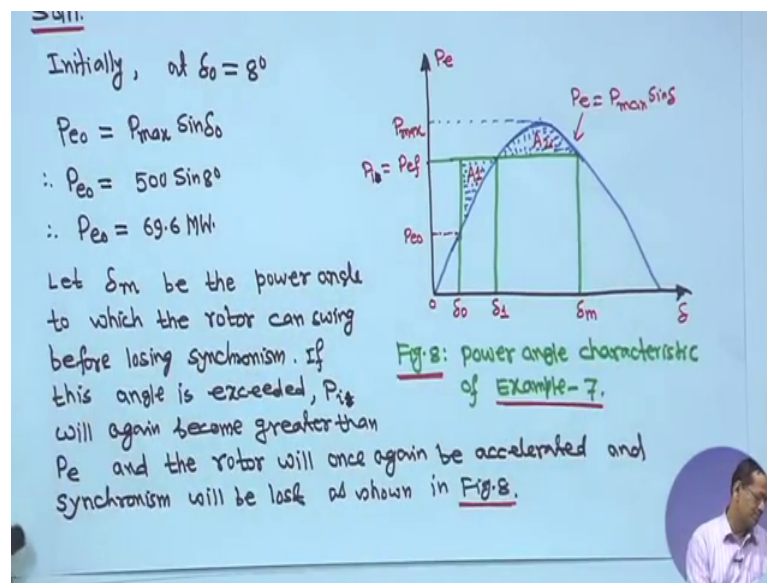 Soln.
Initially, at δ0 = 8°
Pe0 = Pmax Sinδ0
∴ Pe0 = 500 Sin8°
∴ Pe0 = 69.6 MW.
Let δm be the power angle
to which the rotor can swing
before losing synchronism. If
this angle is exceeded, Pi
will again become greater than
Pe and the rotor will once again be accelerated and
synchronism will be lost as shown in Fig.8.
Pe
Pe = Pmax Sinδ
Pmax
A2
= Pef
A1
Pe0
0 δ0 δ1 δm δ
Fig.8: power angle characteristic
of Example-7.